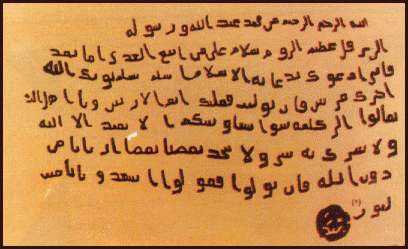 بسم الله الرحمن الرحيم من محمد عبد الله ورسوله
الى هرقل عظيم الروم سلام على من اتبع الهدى اما بعد
فانى ادعوك بدعاية الاسلام اسلم تسلم يوتك الله
اجرك مرتين فان توليت فعليك اثم الاريسين ويا اهل
تعالوا الى كلمة سوا بيننا وبينكم الا نعبد الا الله
ولا نشرك به شيئا ولا يتخذ بعضنا بعضا اربابا من
دون الله فان تولوا فقولوا اشهدوا بانا مس
لمون (٢)